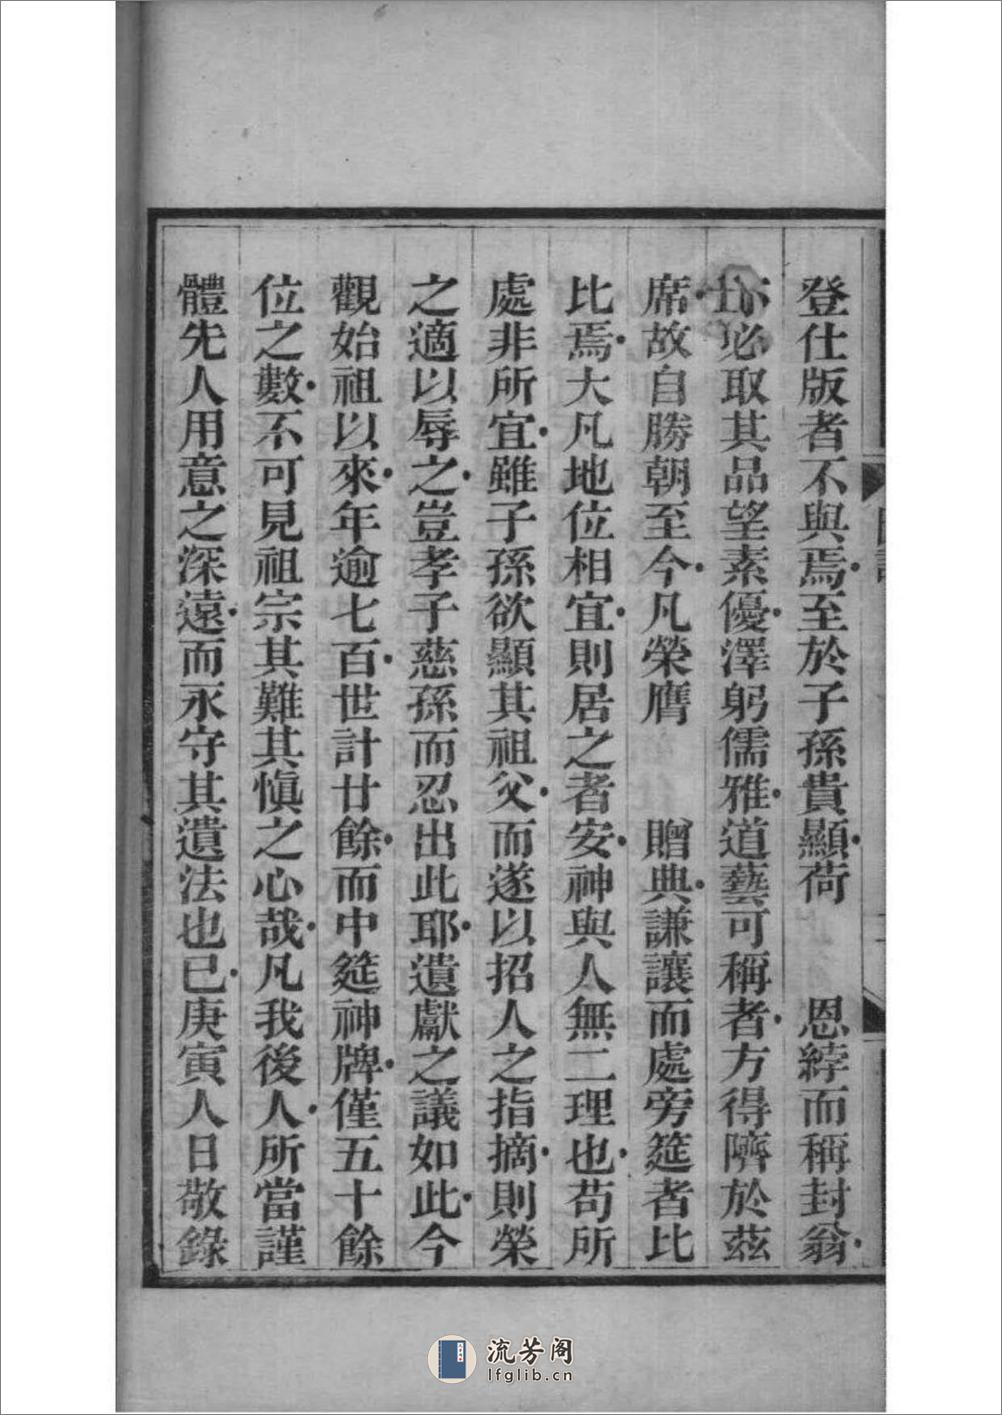 登仕版者不與焉至於子孫貴顯荷 恩綍而稱封翁
亦必取其品望素優澤躬儒雅道藝可稱者方得隮於茲
席故自勝朝至今凡榮膺 贈典謙讓而處旁筵者比
比焉大凡地位相宜則居之者安神與人無二理也苟所
處非所宜雖子孫欲顯其祖父而遂以招人之指摘則榮
之適以辱之豈孝子慈孫而忍出此耶遺獻之議如此今
觀始祖以來年逾七百世計廿餘而中筵神牌僅五十餘
位之數不可見祖宗其難其慎之心哉凡我後人所當謹
體先人用意之深遠而永守其遺法也已庚寅人日敬錄
流芳阁
lfglib.cn